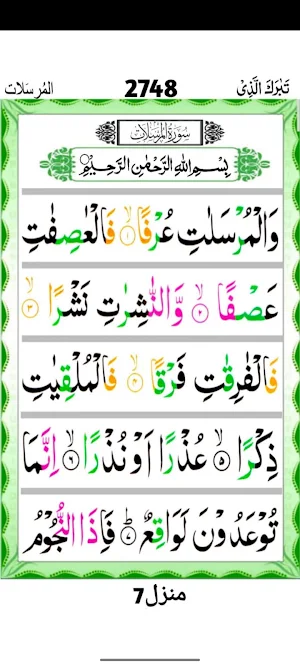 تَبٰرَكَ الَّذِیْ 2748 المُرسَلات
سُوْرَةُ الْمُرْسَلَات
بِسْمِ اللّٰهِ الرَّحْمٰنِ الرَّحِیْمِ
وَالْمُرْسَلٰتِ عُرْفًا ۙ﴿۱﴾ فَالْعٰصِفٰتِ
عَصْفًا ۙ﴿۲﴾ وَّالنّٰشِرٰتِ نَشْرًا ۙ﴿۳﴾
فَالْفٰرِقٰتِ فَرْقًا ۙ﴿۴﴾ فَالْمُلْقِیٰتِ
ذِكْرًا ۙ﴿۵﴾ عُذْرًا اَوْ نُذْرًا ۙ﴿۶﴾ اِنَّمَا
تُوْعَدُوْنَ لَوَاقِعٌ ؕ﴿۷﴾ فَاِذَا النُّجُوْمُ
منزل 7